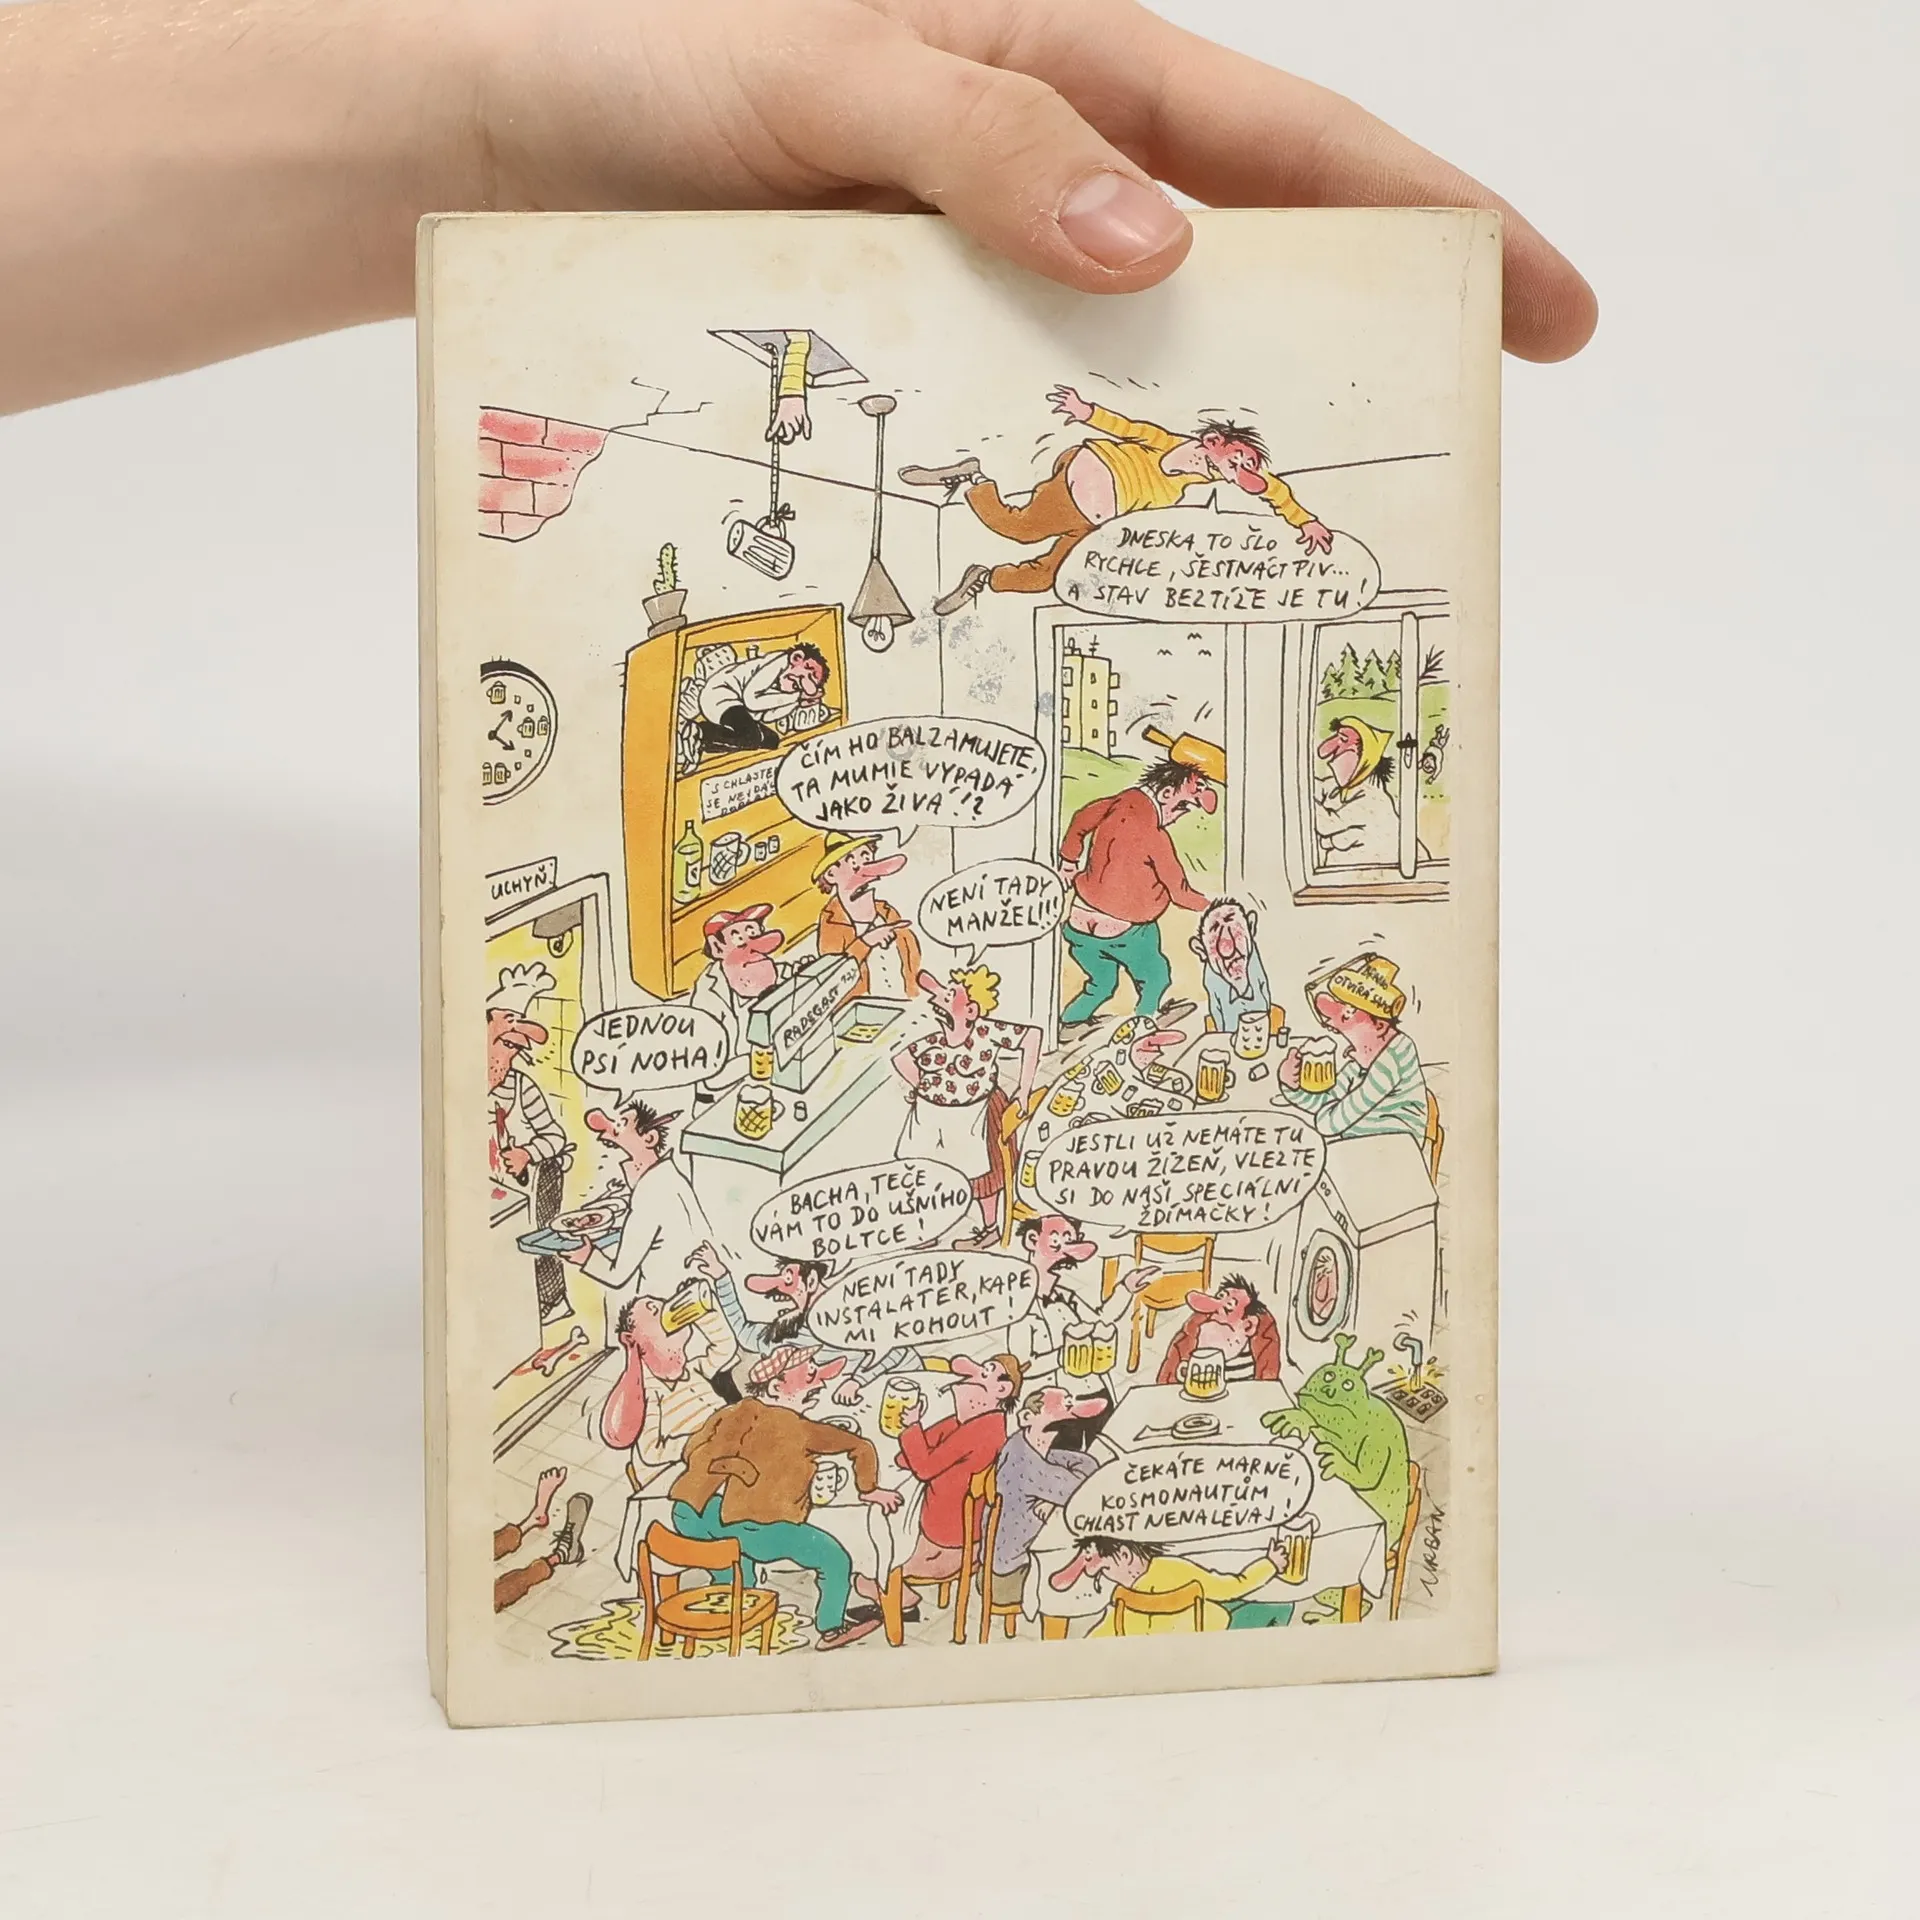 DNESKA TO ŠLO
RYCHLE, ŠESTNÁCT PIV...
A STAV BEZTÍŽE JE TU!
ČÍM HO BALZAMUJETE,
TA MUMIE VYPADÁ
JAKO ŽIVÁ!?
S CHLASTEM
SE NEJDÁL
NENÍ TADY
MANŽEL!!!
UCHYŇ
JEDNOU
PSÍ NOHA!
RADEGAST 12°
OTVÍRÁ SAMO
JESTLI UŽ NEMÁTE TU
PRAVOU ŽÍZEŇ, VLEZTE
SI DO NAŠÍ SPECIÁLNÍ
ŽDÍMAČKY!
BACHA, TEČE
VÁM TO DO UŠNÍHO
BOLTCE!
NENÍ TADY
INSTALATÉR, KAPE
MI KOHOUT!
ČEKÁTE MARNĚ,
KOSMONAUTŮM
CHLAST NENALÉVAJ!
URBAN